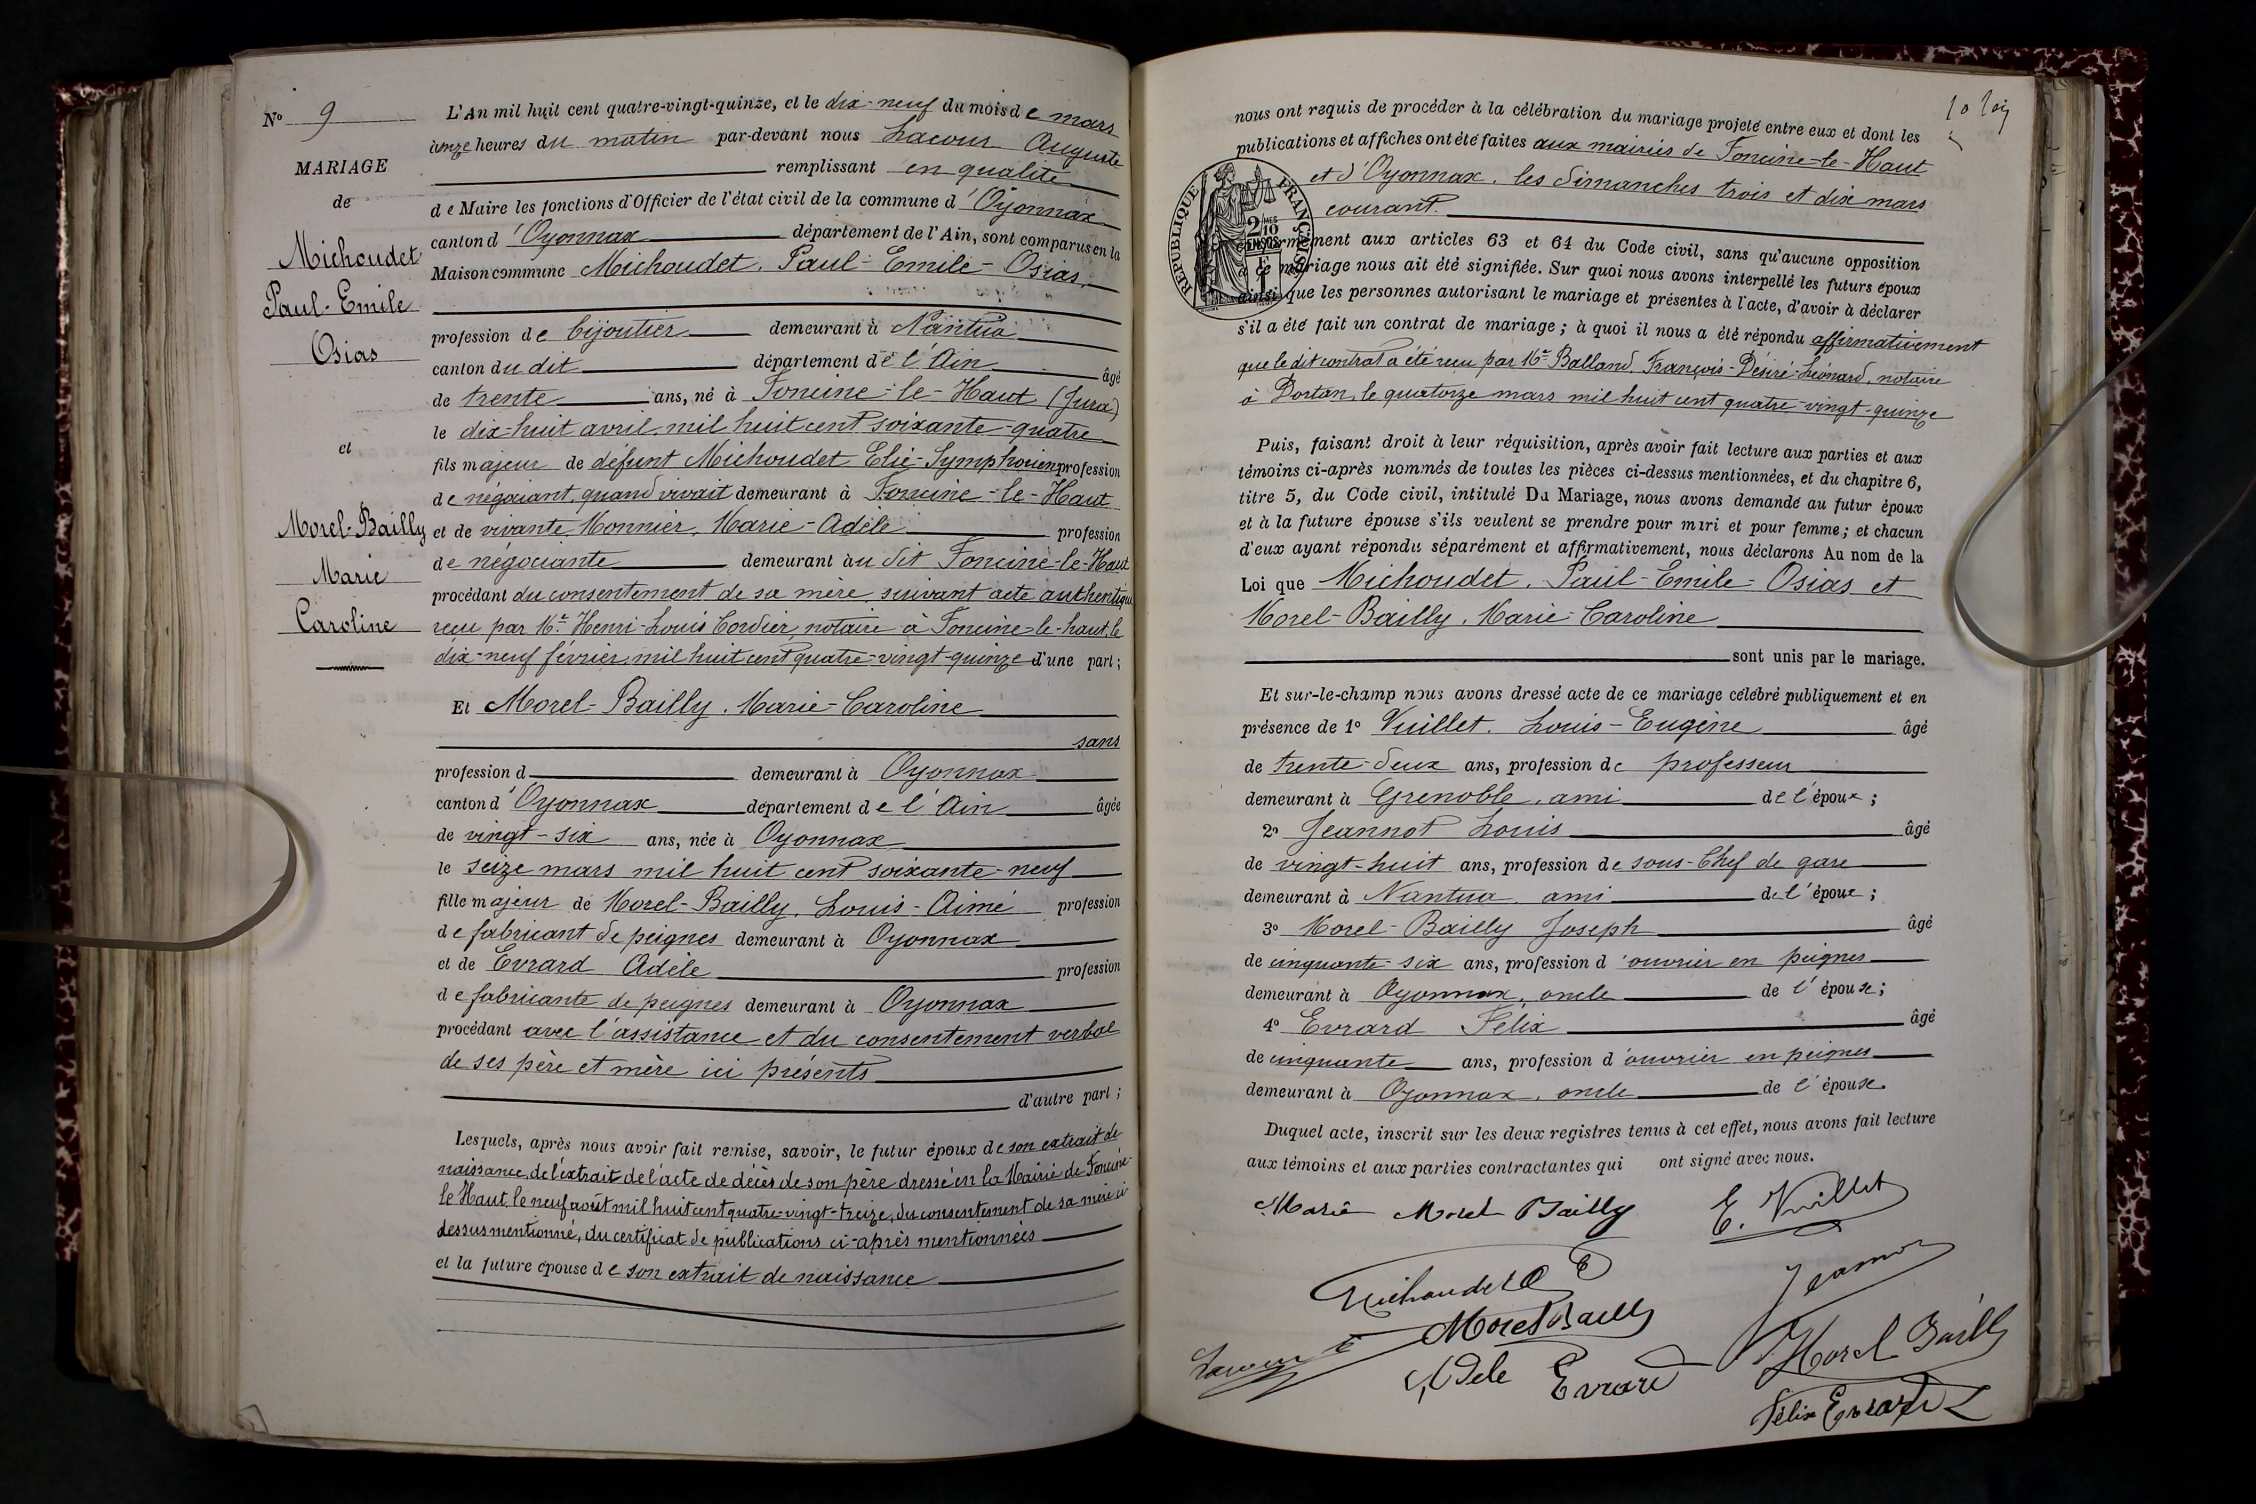 Nº 9
MARIAGE
de
Michoudet
Paul-Emile
Osias
et
Morel-Bailly
Marie
Caroline
L'An mil huit cent quatre-vingt-quinze, et le dix-neuf du mois de mars
à onze heures du matin par-devant nous Lacour Auguste
remplissant en qualité
de Maire les fonctions d'Officier de l'état civil de la commune d'Oyonnax
canton d'Oyonnax département de l'Ain, sont comparus en la
Maison commune Michoudet, Paul-Emile-Osias,
profession de bijoutier demeurant à Nantua
canton du dit département de l'Ain âgé
de trente ans, né à Foncine-le-Haut (Jura)
le dix-huit avril, mil huit cent soixante-quatre
fils majeur de défunt Michoudet Elie-Symphorien profession
de négociant, quand vivait demeurant à Foncine-le-Haut
et de vivante Monnier, Marie-Adèle profession
de négociante demeurant au dit Foncine-le-Haut
procédant du consentement de sa mère suivant acte authentique
reçu par Me Henri-Louis Cordier, notaire à Foncine-le-haut, le
dix-neuf février, mil huit cent quatre-vingt-quinze d'une part;
Et Morel-Bailly, Marie-Caroline
sans
profession d demeurant à Oyonnax
canton d'Oyonnax département de l'Ain âgée
de vingt-six ans, née à Oyonnax
le seize mars mil huit cent soixante-neuf
fille majeur de Morel-Bailly, Louis-Aimé profession
de fabricant de peignes demeurant à Oyonnax
et de Evrard Adèle profession
de fabricante de peignes demeurant à Oyonnax
procédant avec l'assistance et du consentement verbal
de ses père et mère ici présents
d'autre part;
Lesquels, après nous avoir fait remise, savoir, le futur époux de son extrait de
naissance, de l'extrait de l'acte de décès de son père dressé en la Mairie de Foncine-
le Haut le neuf août mil huit cent quatre-vingt-treize, du consentement de sa mère ci
dessus mentionné, du certificat de publications ci-après mentionnées
et la future épouse de son extrait de naissance
nous ont requis de procéder à la célébration du mariage projeté entre eux et dont les
publications et affiches ont été faites aux mairies de Foncine-le-Haut
et d'Oyonnax, les dimanches trois et dix mars
courant.
conformément aux articles 63 et 64 du Code civil, sans qu'aucune opposition
à ce mariage nous ait été signifiée. Sur quoi nous avons interpellé les futurs époux
ainsi que les personnes autorisant le mariage et présentes à l'acte, d'avoir à déclarer
s'il a été fait un contrat de mariage; à quoi il nous a été répondu affirmativement
que le dit contrat a été reçu par Me Balland François-Désiré-Léonard, notaire
à Dortan, le quatorze mars mil huit cent quatre-vingt-quinze
RÉPUBLIQUE FRANÇAISE
2/10 MES
EN SUS
Puis, faisant droit à leur réquisition, après avoir fait lecture aux parties et aux
témoins ci-après nommés de toutes les pièces ci-dessus mentionnées, et du chapitre 6,
titre 5, du Code civil, intitulé Du Mariage, nous avons demandé au futur époux
et à la future épouse s'ils veulent se prendre pour mari et pour femme; et chacun
d'eux ayant répondu séparément et affirmativement, nous déclarons Au nom de la
Loi que Michoudet, Paul-Emile-Osias et
Morel-Bailly, Marie-Caroline
sont unis par le mariage.
Et sur-le-champ nous avons dressé acte de ce mariage célébré publiquement et en
présence de 1º Vuillet, Louis-Eugène âgé
de trente-deux ans, profession de professeur
demeurant à Grenoble, ami de l'époux;
2º Jeannot Louis âgé
de vingt-huit ans, profession de sous-Chef de gare
demeurant à Nantua, ami de l'époux;
3º Morel-Bailly Joseph âgé
de cinquante-six ans, profession d'ouvrier en peignes
demeurant à Oyonnax, oncle de l'épouse;
4º Evrard Félix âgé
de cinquante ans, profession d'ouvrier en peignes
demeurant à Oyonnax, oncle de l'épouse.
Duquel acte, inscrit sur les deux registres tenus à cet effet, nous avons fait lecture
aux témoins et aux parties contractantes qui ont signé avec nous.
Marie Morel Bailly
E. Vuillet
Michoudet
Jeannot
Morel Bailly
Lacour
Adele Evrard
Morel Bailly
Félix Evrard